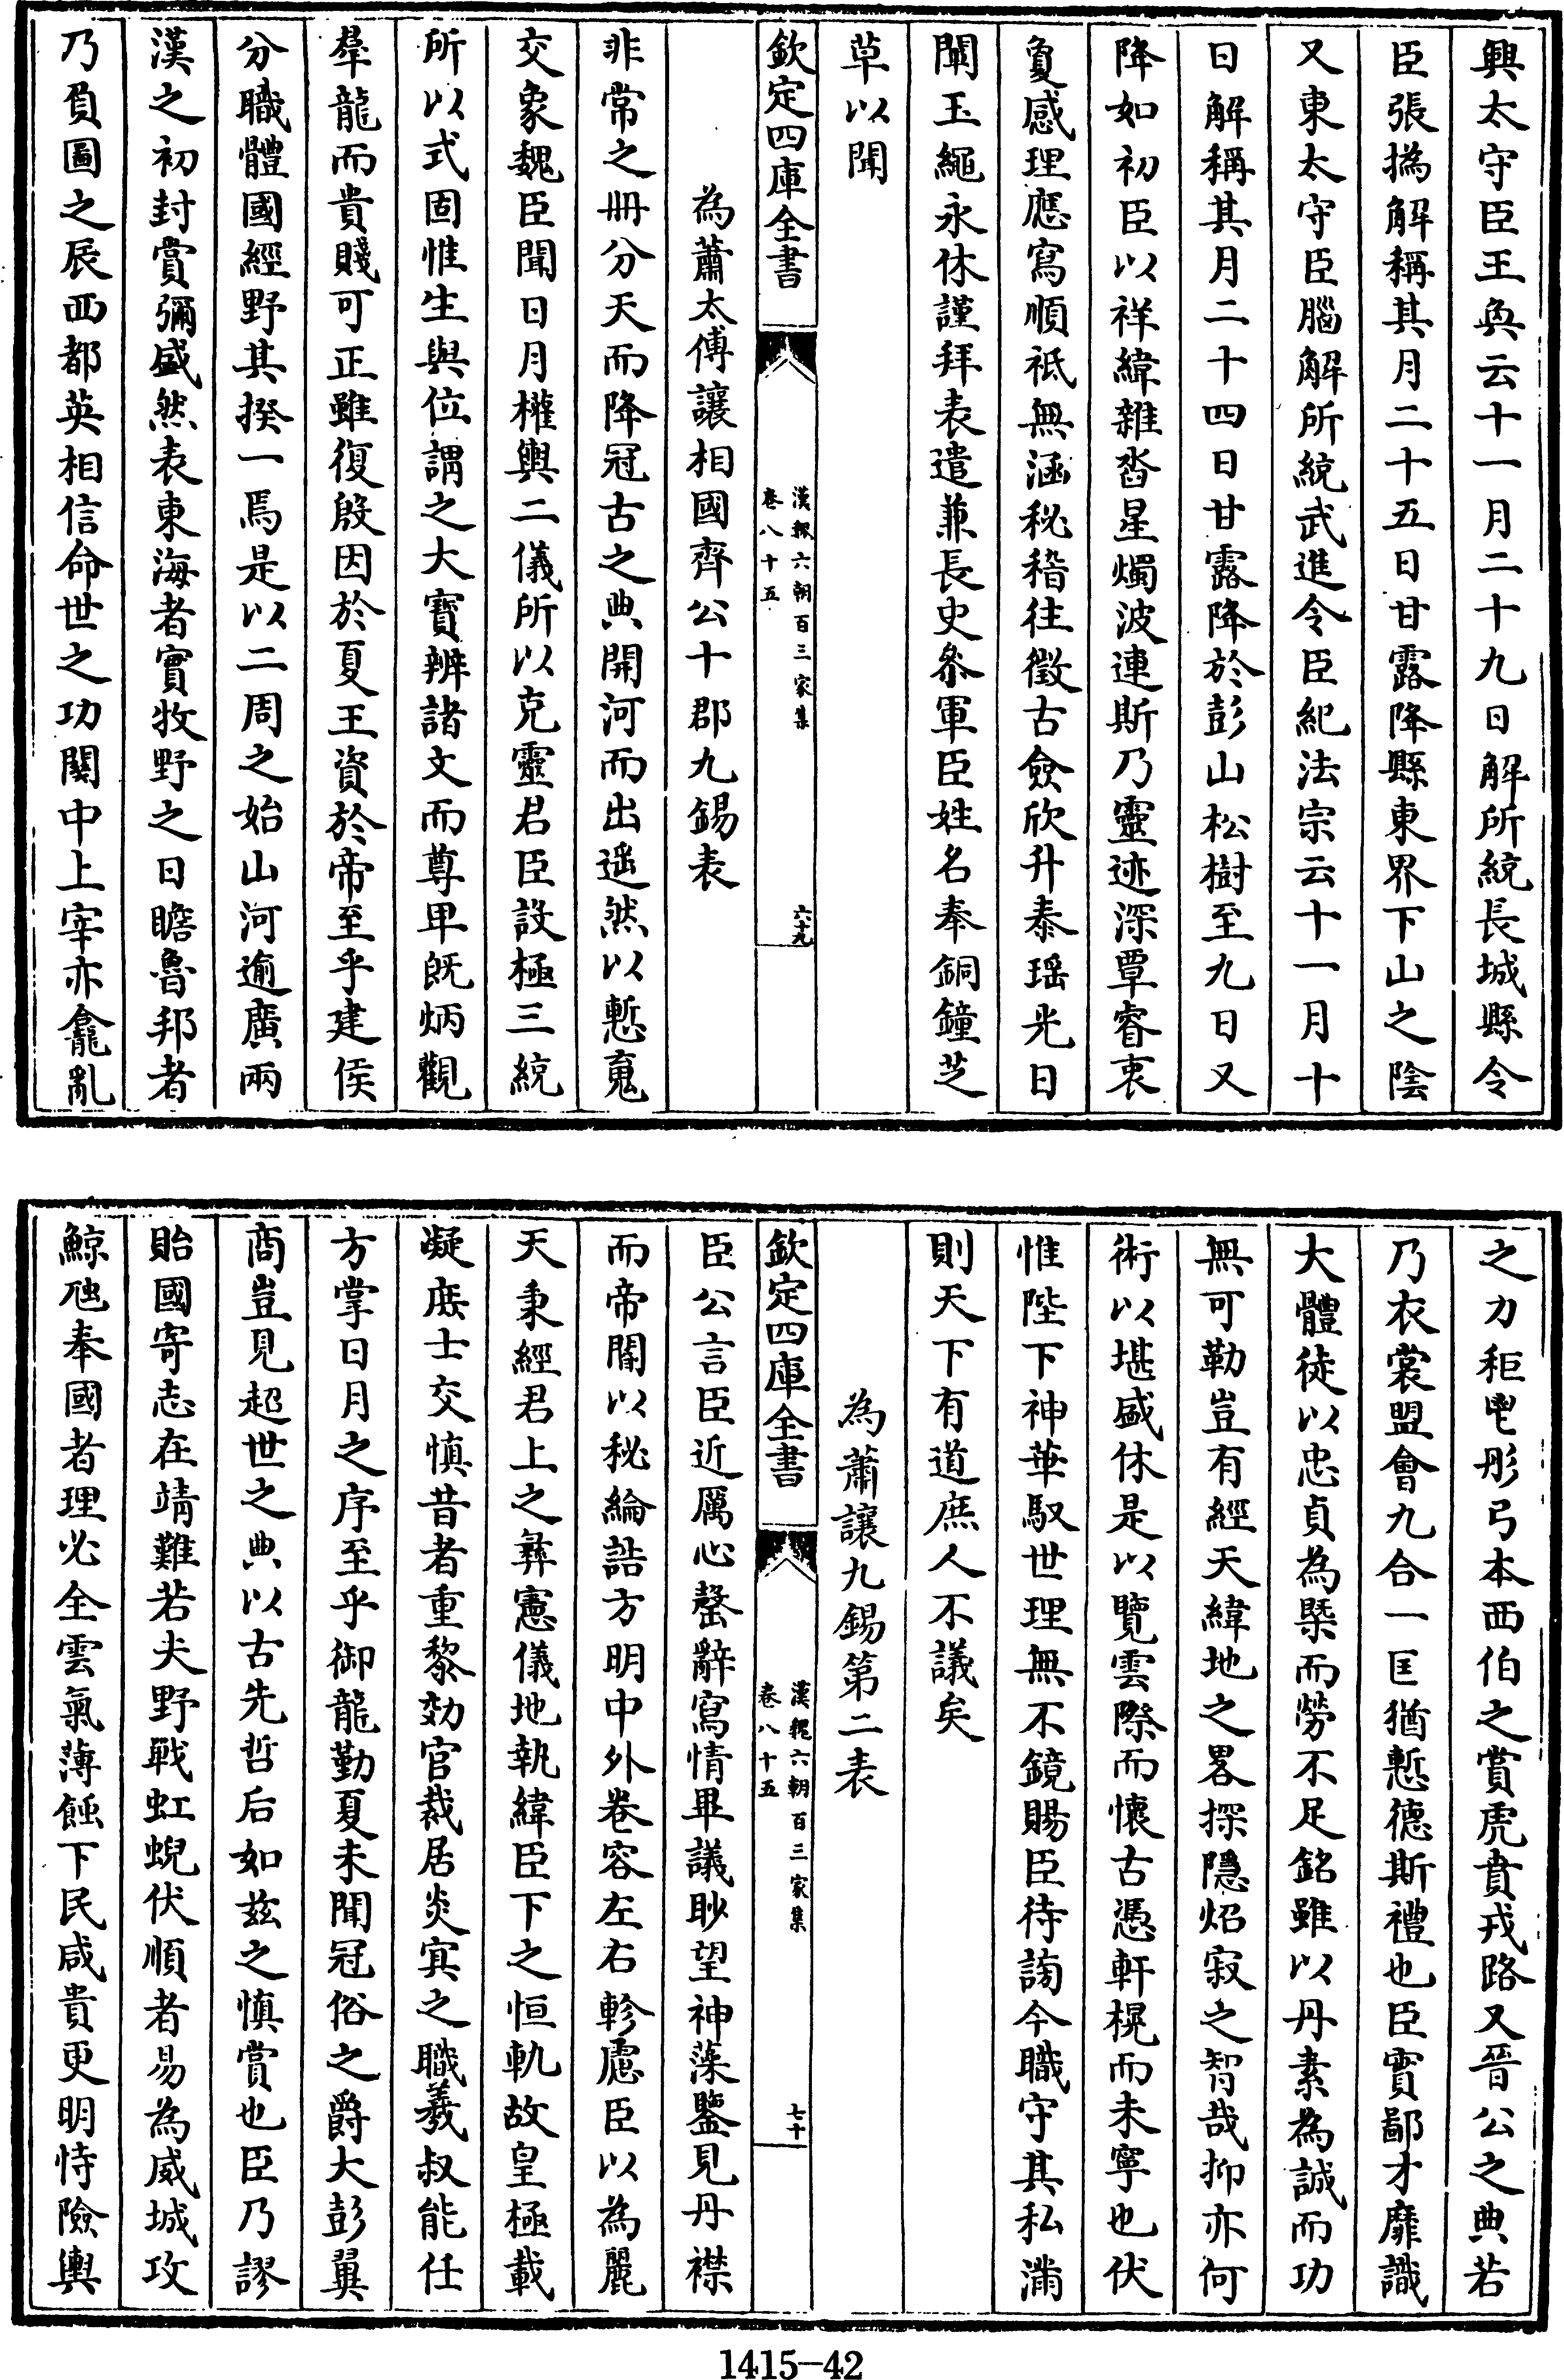 興太守臣王奐云十一月二十九日解所統長城縣令
臣張撝解稱其月二十五日甘露降縣東界下山之陰
又東太守臣腦解所統武進令臣紀法宗云十一月十
日解稱其月二十四日甘露降於彭山松樹至九日又
降如初臣以祥緯雜沓星燭波連斯乃靈迹深覃睿衷
敻感理應寫順祗無涵秘稽往徵古僉欣升泰瑶光日
闡玉繩永休謹拜表遣兼長史叅軍臣姓名奉銅鐘芝
草以聞
欽定四庫全書
漢魏六朝百三家集
卷八十五
六十九
為蕭太傅讓相國齊公十郡九錫表
非常之冊分天而降冠古之典開河而出遥然以慙嵬
交象魏臣聞日月權輿二儀所以克靈君臣設極三統
所以式固惟生與位謂之大寶辨諸文而尊卑旣炳觀
羣龍而貴賤可正雖復殷因於夏王資於帝至乎建侯
分職體國經野其揆一焉是以二周之始山河逾廣兩
漢之初封賞彌盛然表東海者實牧野之日瞻魯邦者
乃負圖之辰西都英相信命世之功關中上宰亦龕亂
之力秬鬯彤弓本西伯之賞虎賁戎路又晉公之典若
乃衣裳盟會九合一匡猶慙德斯禮也臣實鄙才靡識
大體徒以忠貞為槩而勞不足銘雖以丹素為誠而功
無可勒豈有經天緯地之畧探隱炤寂之智哉抑亦何
術以堪盛休是以覽雲際而懷古憑軒榥而未寧也伏
惟陛下神華馭世理無不鏡賜臣待謭今職守其私滿
則天下有道庶人不議矣
為蕭讓九錫第二表
欽定四庫全書
漢魏六朝百三家集
卷八十五
七十
臣公言臣近厲心罄辭寫情畢議眇望神藻鑒見丹襟
而帝閽以秘綸誥方明中外卷容左右軫慮臣以為麗
天秉經君上之彝憲儀地執緯臣下之恒軌故皇極載
凝庶士交慎昔者重黎効官裁居炎㝠之職羲叔能任
方掌日月之序至乎御龍勤夏未聞冠俗之爵大彭翼
商豈見超世之典以古先哲后如兹之慎賞也臣乃謬
貽國寄志在靖難若夫野戰虹蜺伏順者易為威城攻
鯨虺奉國者理必全雲氣薄蝕下民咸貴更明恃險輿
1415-42